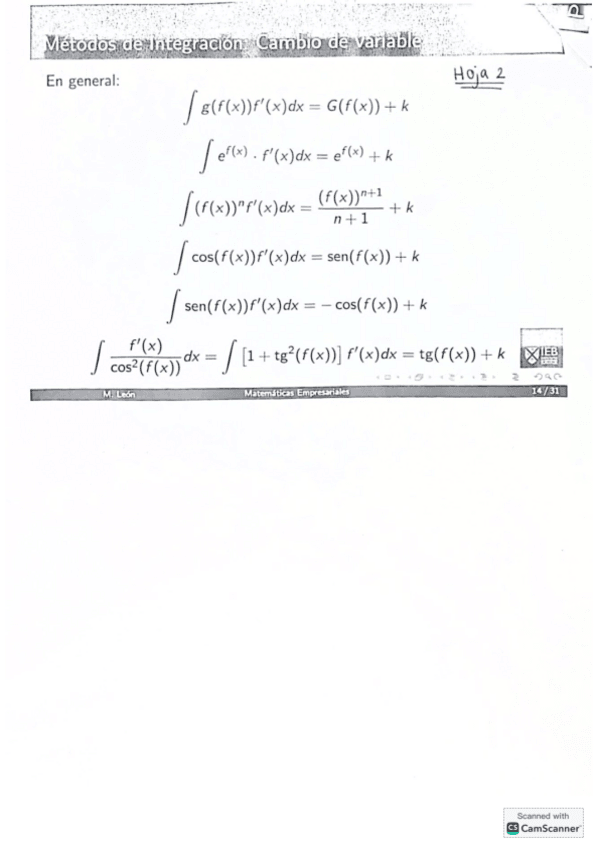 Métodos de Integración: Cambio de variable
Hoja 2
En general:
∫ g(f(x))f'(x)dx = G(f(x)) + k
∫ e^{f(x)} · f'(x)dx = e^{f(x)} + k
∫ (f(x))^n f'(x)dx = (f(x))^{n+1} / (n + 1) + k
∫ cos(f(x))f'(x)dx = sen(f(x)) + k
∫ sen(f(x))f'(x)dx = − cos(f(x)) + k
∫ f'(x) / cos²(f(x)) dx = ∫ [1 + tg²(f(x))] f'(x)dx = tg(f(x)) + k
IEB
M. León Matemáticas Empresariales 14/31
Scanned with
CS CamScanner